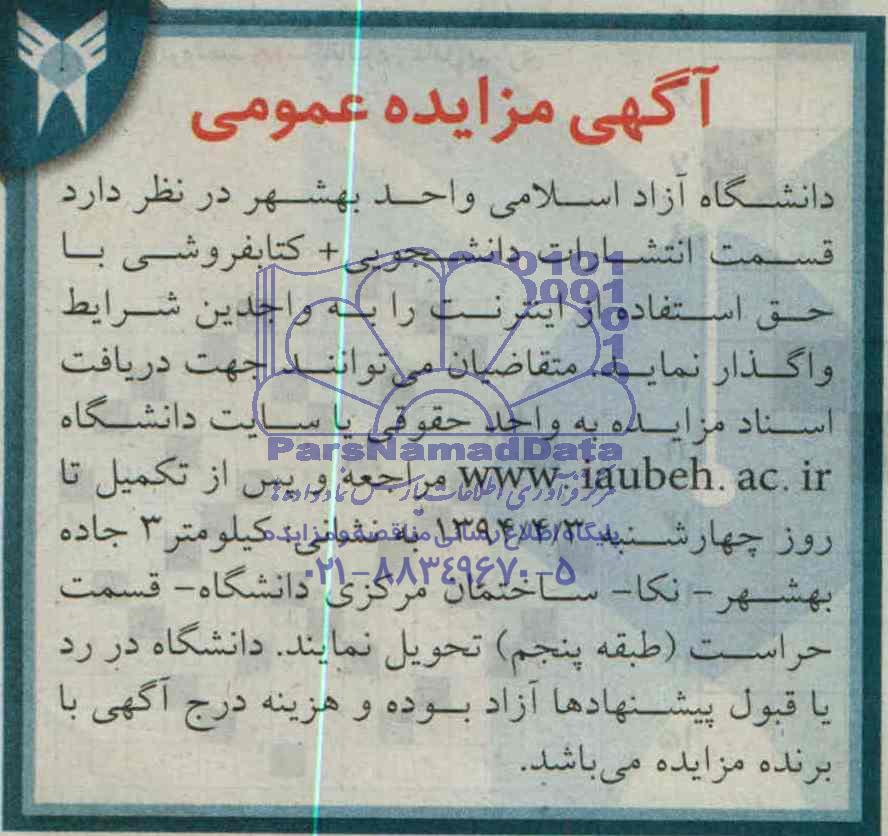 آگهی مزایده عمومی
دانشگاه آزاد اسلامی واحد بهشهر در نظر دارد
قسمت انتشارات دانشجویی+ کتابفروشی با
حق استفاده از اینترنت را به واجدین شرایط
واگذار نماید. متقاضیان می‌توانند جهت دریافت
اسناد مزایده به واحد حقوقی یا سایت دانشگاه
www.iaubeh.ac.ir مراجعه و پس از تکمیل تا
روز چهارشنبه ۱۳۹۴/۴/۳ به نشانی: کیلومتر ۳ جاده
بهشهر- نکا- ساختمان مرکزی دانشگاه- قسمت
حراست (طبقه پنجم) تحویل نمایند. دانشگاه در رد
یا قبول پیشنهادها آزاد بوده و هزینه درج آگهی با
برنده مزایده می‌باشد.
0101
0001
10
1
ParsNamadData
مرکز فرآوری اطلاعات پارس نماد داده‌ها
پایگاه اطلاع رسانی مناقصه و مزایده
۰۲۱-۸۸۳۴۹۶۷۰-۵